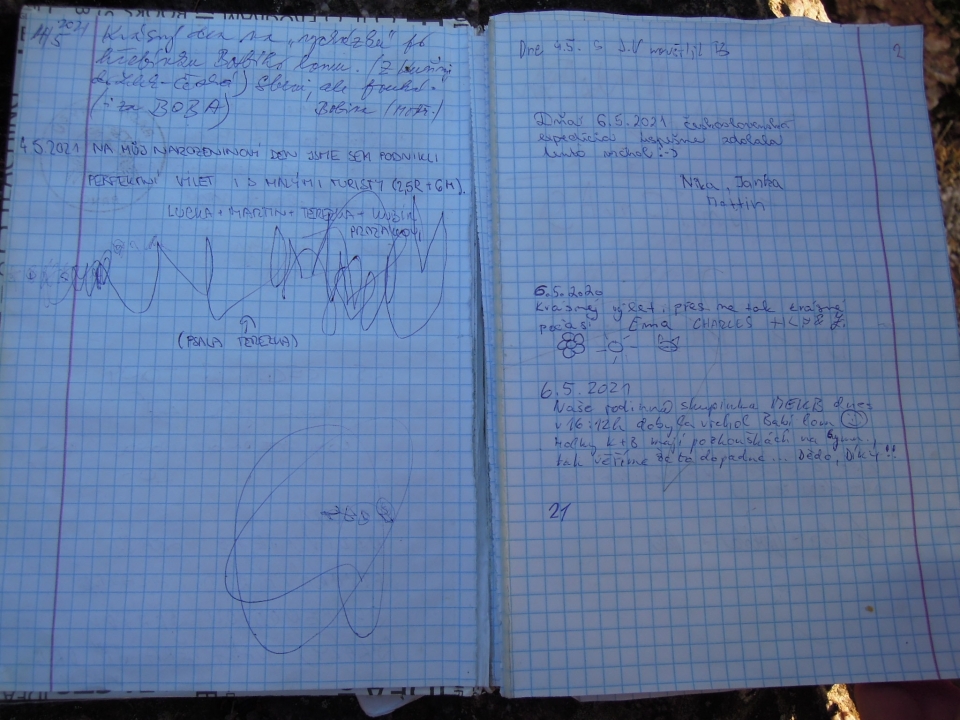 4/5 2021 Krásný den na „vycházku" po
hřebínku Babího lomu.
Sbesi, ale fouká.
(i za BOBA) Bobina
4.5.2021 NA MŮJ NAROZENINOVÍ DEN JSME SEM PODNIKLI
PERFEKTNÍ VÝLET I S MALÝMI TURISTY (2,5R + 6M).
LUCKA + MARTIN + TEREZKA +
PRAŽÁKOVI
(PSALA TEREZKA)
Dne 4.5. navštívil
2
Dňa 6.5.2021 československá
expedícia úspešne zdolala
tento vrchol :-)
Nika, Janka
Martin
6.5.2020
Krásnej výlet, přes ne tak krásné
počasí Ema CHARLES
6.5.2021
Naše rodinná skupinka MEKB dnes
v 16:12h dobyla vrchol Babí lom
Holky K+B mají po zkouškách na gymn..,
tak věříme že to dopadne... Dědo, Díky!!
21